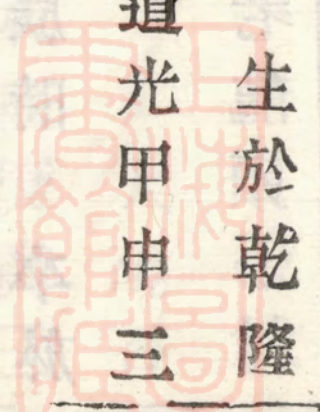 生於乾隆
道光甲申三